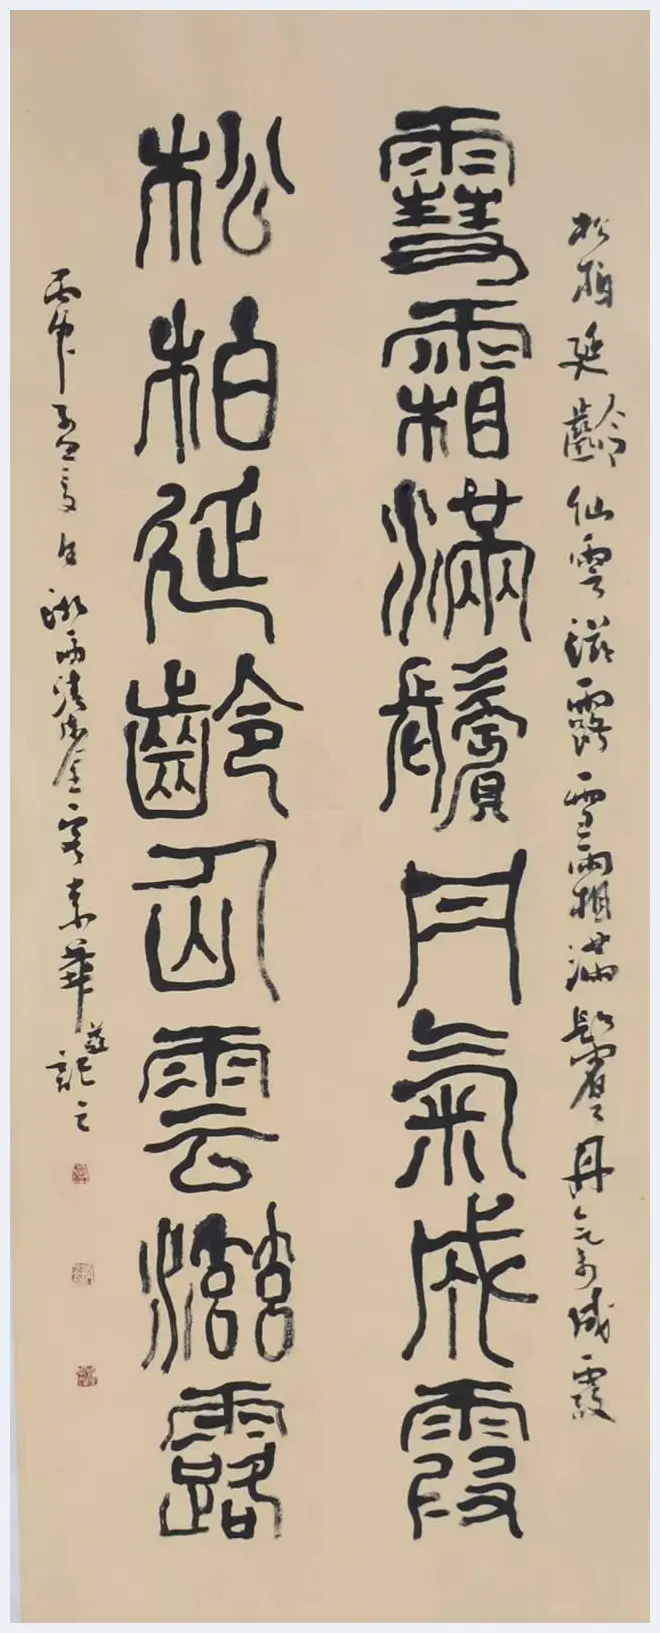 松柏延齡仙雲滋露雪霜滿鬢丹氣成霞
雪霜滿鬢丹氣成霞
松柏延齡仙雲滋露
丙申孟夏日素華並記之